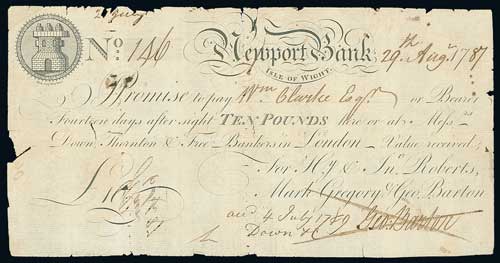 July
No. 146 Newport Bank 29th Augt. 1787
ISLE OF WIGHT.
I Promise to pay Wm. Clarke Esqr. or Bearer
Fourteen days after sight TEN POUNDS here or at Messrs.
Down, Thornton & Free Bankers in London Value received;
For HJ & Jno. Roberts,
Mark Gregory & Geo. Barton
£
acc 4 July 1789 Geo: Barton
Down &C